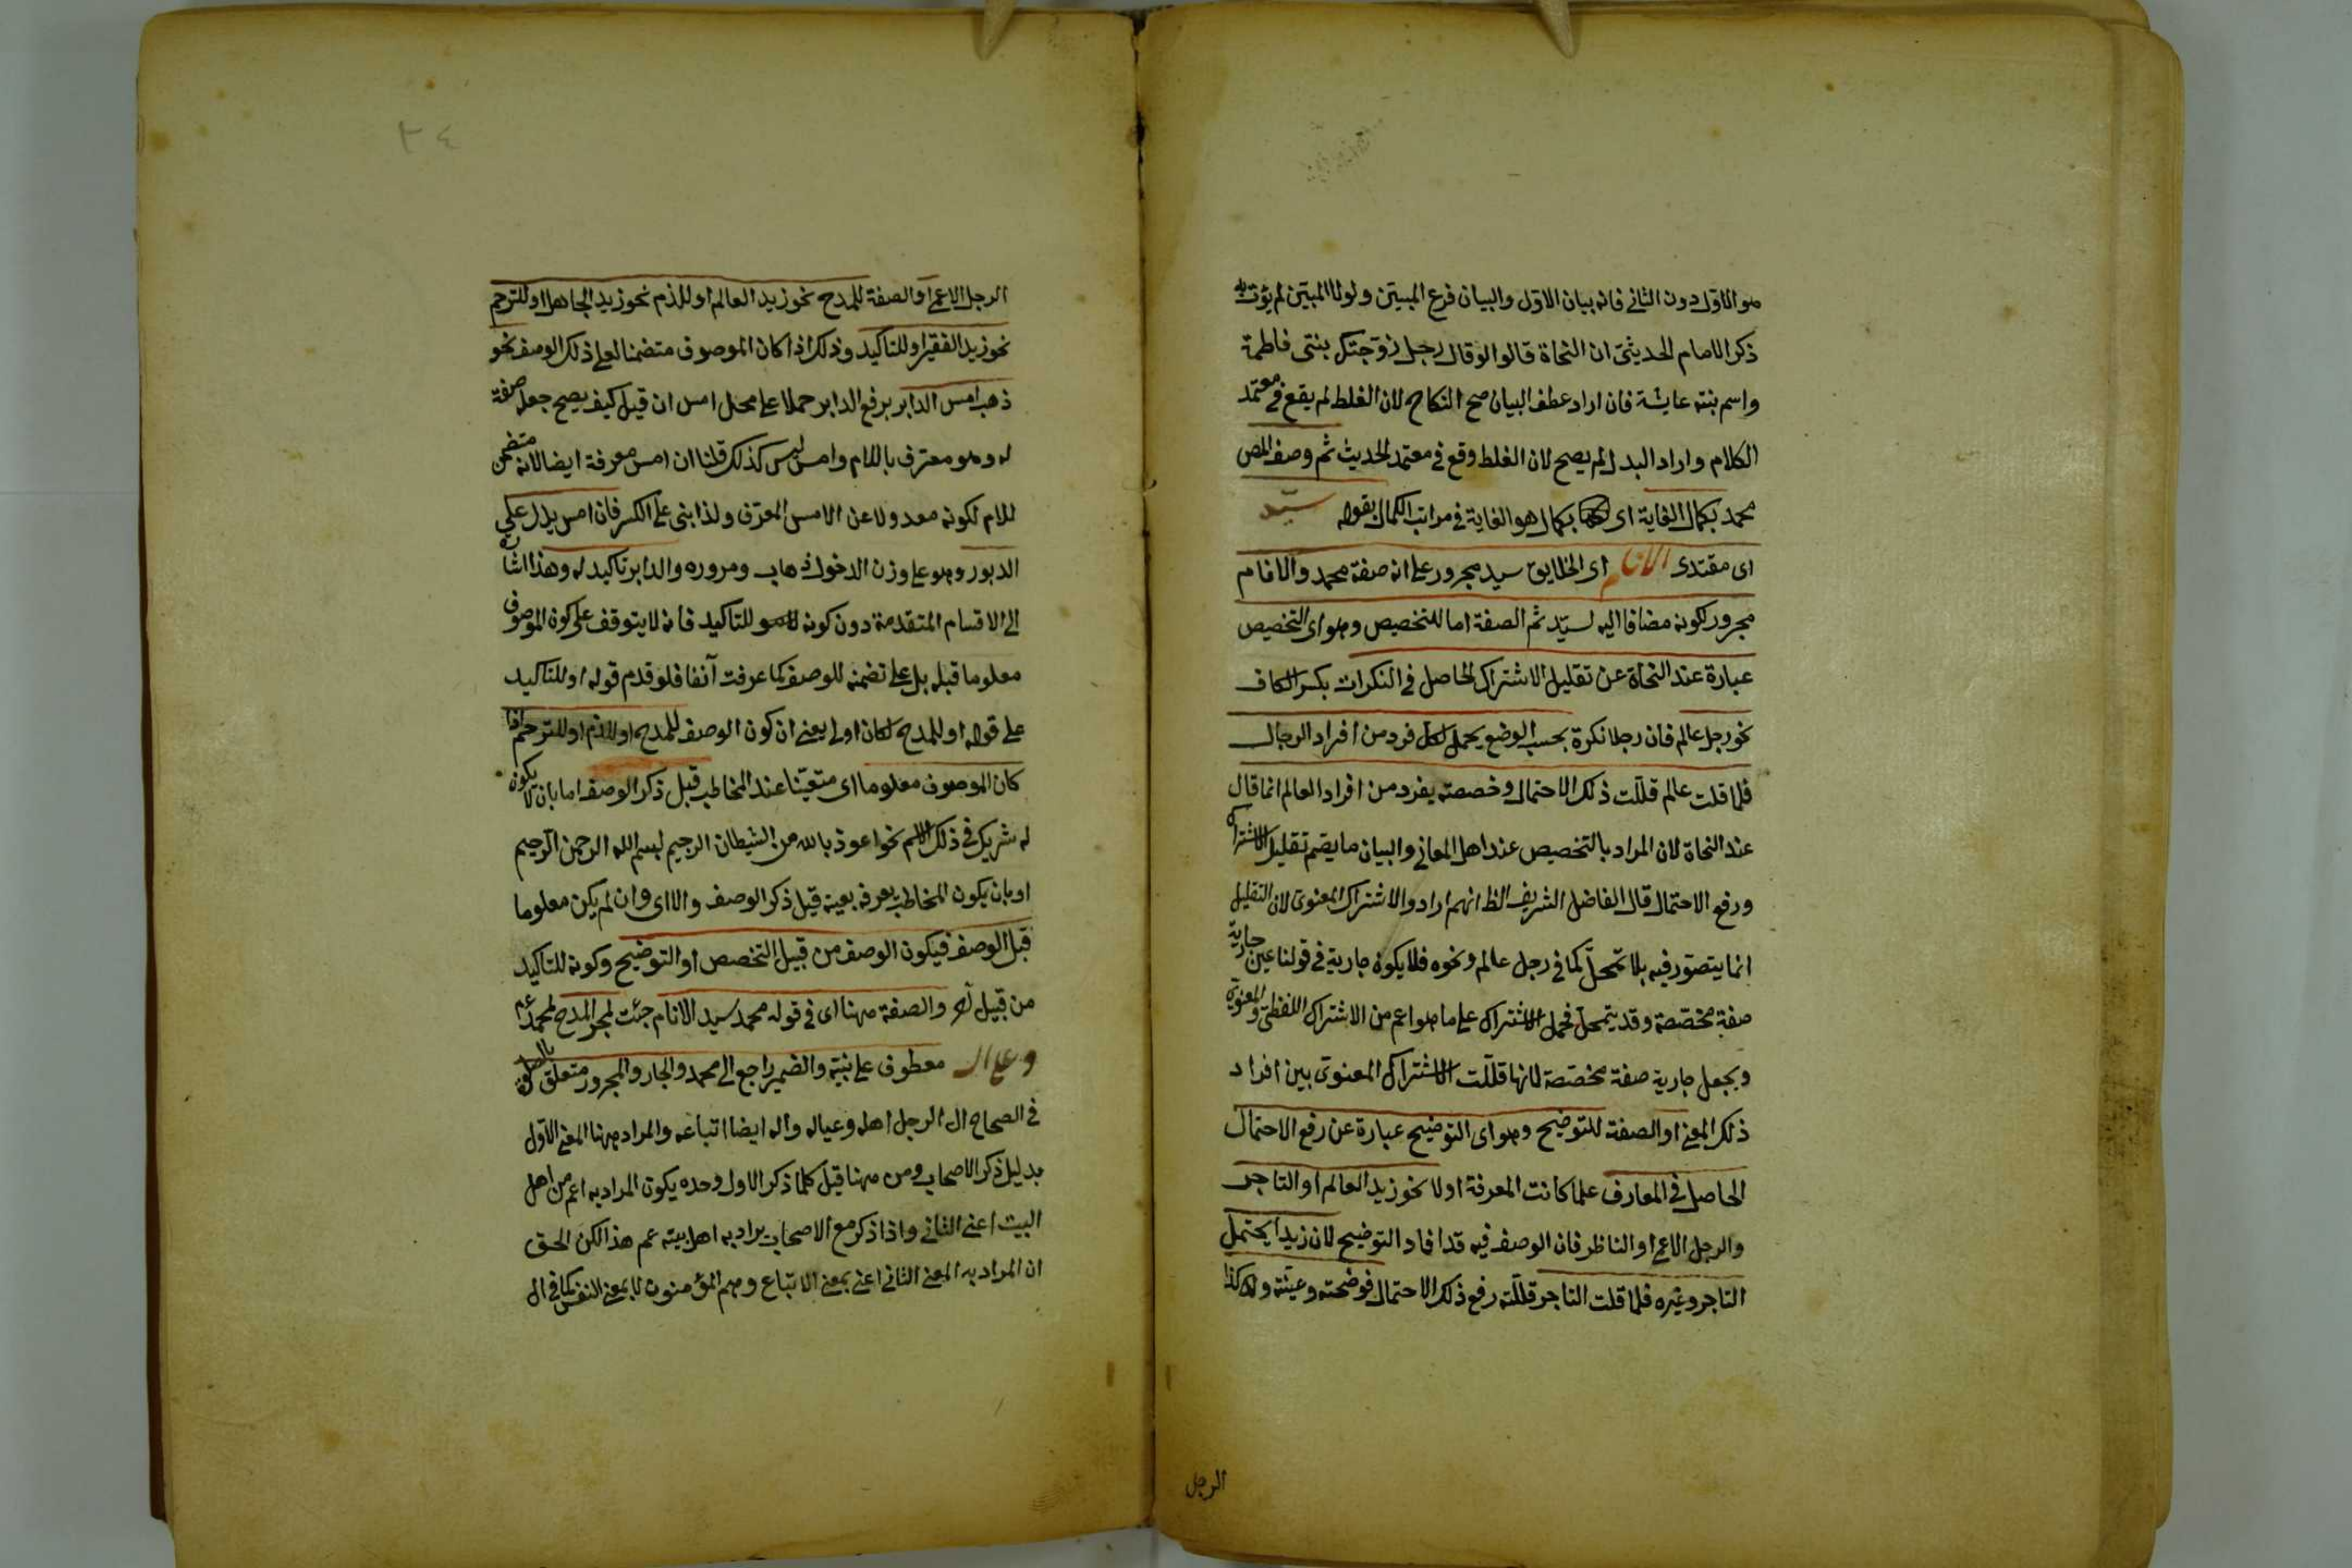 هو الاول دون الثاني فانه بيان الاول والبيان فرع المبين ولولا المبين لم يؤت به
ذكر الامام الحديثي ان النحاة قالوا لو قال رجل زوجتك بنتي فاطمة
واسم بنته عايشة فان اراد عطف البيان صح النكاح لان الغلط لم يقع في معتمد
الكلام واراد البدل لم يصح لان الغلط وقع في معتمد الحديث ثم وصف المص
محمد بكمال الغاية اى بكمال هو الغاية في مراتب الكمال بقوله سيد
اى مقتدى الانام اى الخلايق سيد مجرور على انه صفة محمد والانام
مجرور لكونه مضافا اليه لسيد ثم الصفة اما للتخصيص وهو اى التخصيص
عبارة عند النحاة عن تقليل الاشتراك الحاصل في النكرات بكسر الكاف
نحو رجل عالم فان رجلا نكرة بحسب الوضع يحمل لكل فرد من افراد الرجال
فلما قلت عالم قللت ذلك الاحتمال وخصصته بفرد من افراد العالم انما قال
عند النحاة لان المراد بالتخصيص عند اهل المعاني والبيان ما يعم تقليل الاشتراك
ورفع الاحتمال قال الفاضل الشريف الظ انهم ارادوا الاشتراك المعنوى لان التقليل
انما يتصور فيه بلا تمحل كما في رجل عالم ونحوه فلا يكون جارية في قولنا عين جارية
صفة مخصصة وقد يتمحل فحمل الاشتراك على ما هو اعم من الاشتراك اللفظى والمعنوى
ويجعل جارية صفة مخصصة لانها قللت الاشتراك المعنوى بين افراد
ذلك المعنى او الصفة للتوضيح وهو اى التوضيح عبارة عن رفع الاحتمال
الحاصل في المعارف علما كانت المعرفة اولا نحو زيد العالم او التاجر
والرجل الاعمى او الناظر فان الوصف فيه قد افاد التوضيح لان زيدا يحتمل
التاجر وغيره فلما قلت التاجر قللته رفع ذلك الاحتمال فوضحته وعينته وكذا
الرجل
٣٤
الرجل الاعمى او الصفة للمدح نحو زيد العالم او للذم نحو زيد الجاهل او للترحم
نحو زيد الفقير او للتاكيد وذلك اذا كان الموصوف متضمنا لعلى ذلك الوصف نحو
ذهب امس الدابر برفع الدابر حملا على محل امس ان قيل كيف يصح جعله صفة
له وهو معترف باللام وامس ليس كذلك قلنا ان امس معرفة ايضا لانه متضمن
للام لكونه معدولا عن الامس المعرف ولذا بنى على الكسر فان امس يدل على
الدبور وهو على وزن الدخول ذهاب ومروره والدابر تاكيد له وهذا اشارة
الى الاقسام المتقدمة دون كونه للتاكيد فانه لا يتوقف على كون الموصوف
معلوما قبله بل على تضمنه للوصف كما عرفت آنفا فلو قدم قوله او للتاكيد
على قوله او للمدح لكان اولى يعنى ان كون الوصف للمدح او للذم او للترحم اذا
كان الموصوف معلوما اى متعينا عند المخاطب قبل ذكر الوصف اما بان لا يكون
له شريك في ذلك الاسم نحو اعوذ بالله من الشيطان الرجيم بسم الله الرحمن الرحيم
او بان يكون المخاطب يعرفه بعينه قبل ذكر الوصف والا اى وان لم يكن معلوما
قبل الوصف فيكون الوصف من قبيل التخصص او التوضيح وكونه للتاكيد
من قبيل والصفة ههنا اى في قوله محمد سيد الانام جئت لمجرد المدح لمحمد عم
وعلى اله معطوف على نبيه والضمير راجع الى محمد والجار والمجرور متعلق بالصلوة
في الصحاح ال الرجل اهله وعياله واله ايضا اتباعه والمراد ههنا المعنى الاول
بدليل ذكر الاصحاب ومن ههنا قيل كلما ذكر الاول وحده يكون المراد به اعم من اهل
البيت اعنى الثاني واذا ذكر مع الاصحاب يراد به اهل بيته عم هذا لكن الحق
ان المراد به المعنى الثاني اعنى بمعنى الاتباع وهم المؤمنون لا بمعنى النفس كما في ال